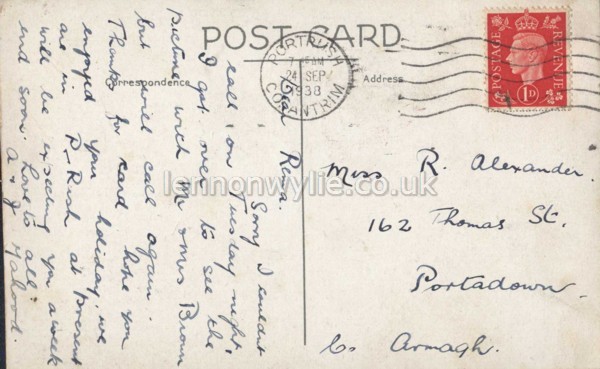 POST CARD
Correspondence
Address
PORTRUSH
7 AM
24 SEP
1938
CO. ANTRIM
POSTAGE
REVENUE
1D
Dear Rewa.
Sorry I couldnt
call on Tuesday night,
I got over to see the
picture with Mr & Mrs Brown
but will call again.
Thanks for card hope you
enjoyed you holiday, we
are in P-Rush at present
will be expecting you a week
end soon. Love to all
Miss R. Alexander.
162 Thomas St.
Portadown.
Co. Armagh.
lennonwylie.co.uk